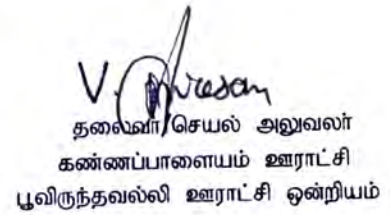 தலைவர்/செயல் அலுவலர்
கண்ணப்பாளையம் ஊராட்சி
பூவிருந்தவல்லி ஊராட்சி ஒன்றியம்